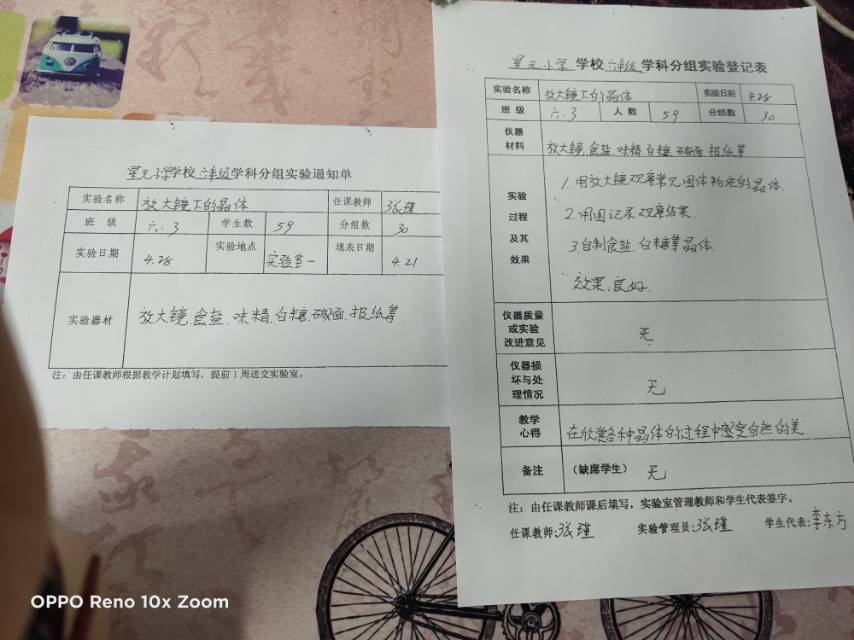 星元小学学校六年级学科分组实验通知单
实验名称 放大镜下的晶体 任课教师 张瑾
班 级 六.3 学生数 59 分组数 30
实验日期 4.28 实验地点 实验室一 填表日期 4.21
实验器材 放大镜.食盐.味精.白糖.碱面.报纸等
注：由任课教师根据教学计划填写，提前1周送交实验室。
星元小学 学校 六年级 学科分组实验登记表
实验名称 放大镜下的晶体 实验日期 4.28
班 级 六.3 人 数 59 分组数 30
仪器
材料 放大镜.食盐.味精.白糖.碱面.报纸等
实验
过程
及其
效果
1.用放大镜观察常见固体物质的晶体.
2.用图记录观察结果.
3.自制食盐.白糖等晶体.
效果.良好.
仪器质量
或实验
改进意见 无
仪器损
坏与处
理情况 无
教学
心得 在欣赏各种晶体的过程中感受自然的美.
备注 （缺席学生） 无
注：由任课教师课后填写，实验室管理教师和学生代表签字。
任课教师:张瑾 实验管理员:张瑾 学生代表:李东方
OPPO Reno 10x Zoom